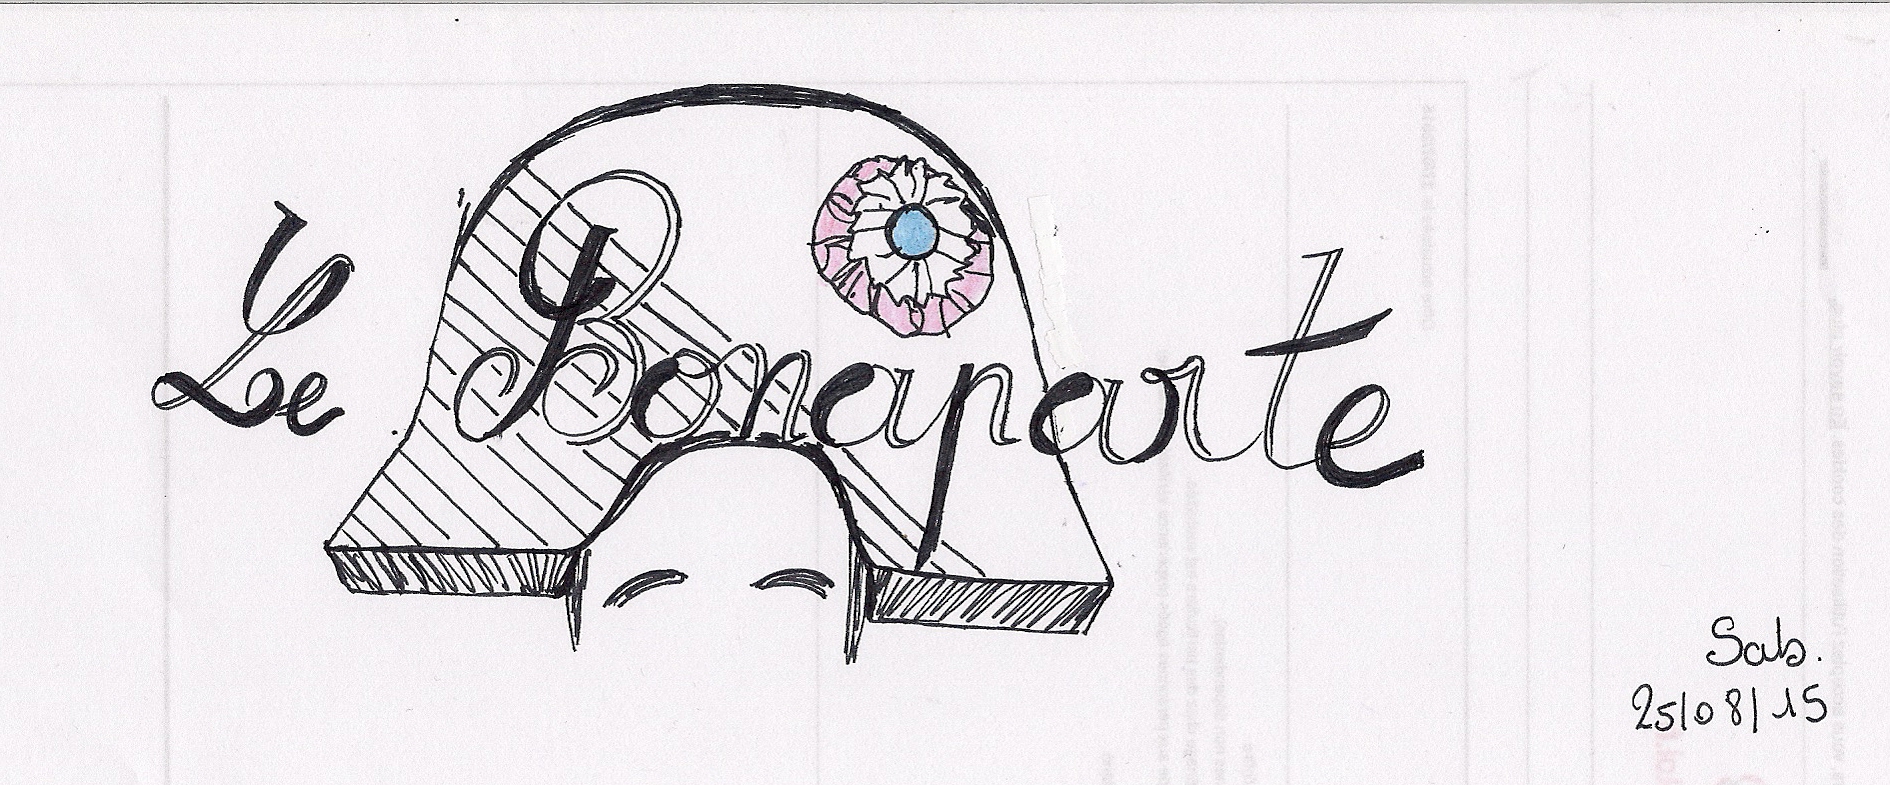 Le Bonaparte
Sab.
25/08/15